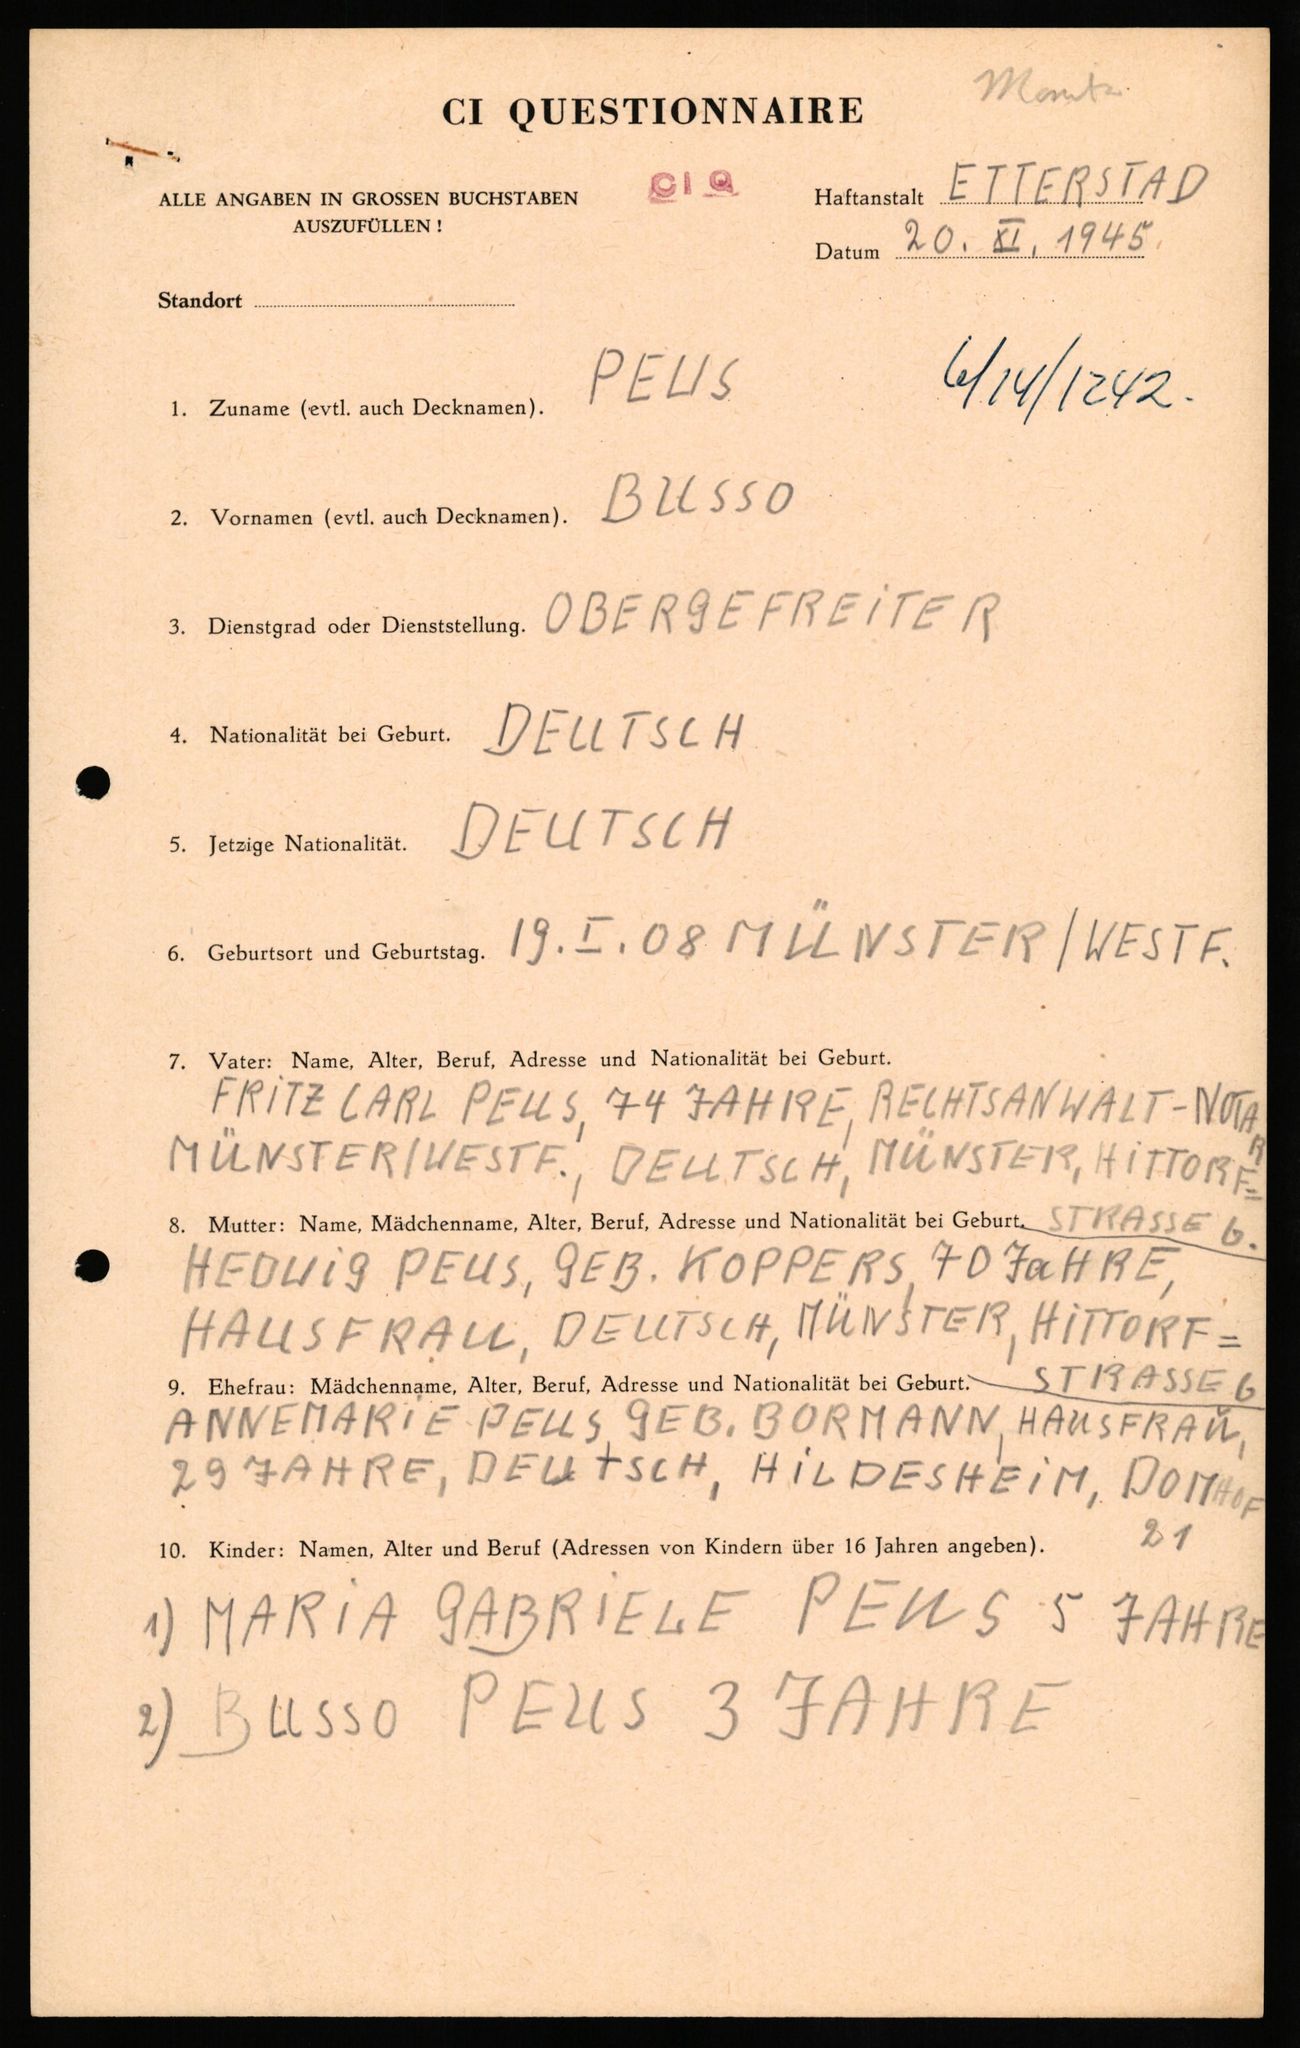 CI QUESTIONNAIRE
ALLE ANGABEN IN GROSSEN BUCHSTABEN
AUSZUFÜLLEN!
CIQ
Haftanstalt ETTERSTAD
Datum 20. XI. 1945.
Standort
6/14/1242.
1. Zuname (evtl. auch Decknamen). PEUS
2. Vornamen (evtl. auch Decknamen). BUSSO
3. Dienstgrad oder Dienststellung. OBERGEFREiTER
4. Nationalität bei Geburt. DEUTSCH
5. Jetzige Nationalität. DEUTSCH
6. Geburtsort und Geburtstag. 19. I. 08 MÜNSTER/WESTF.
7. Vater: Name, Alter, Beruf, Adresse und Nationalität bei Geburt.
FRiTZ CARL PEUS, 74 JAHRE, RECHTSANWALT-NOTAR
MÜNSTER/WESTF., DEUTSCH, MÜNSTER, HiTTORF=
STRASSE 6.
8. Mutter: Name, Mädchenname, Alter, Beruf, Adresse und Nationalität bei Geburt.
HEDWiG PEUS, GEB. KOPPERS, 70 JaHRE,
HAUSFRAU, DEUTSCH, MÜNSTER, HiTTORF=
STRASSE 6
9. Ehefrau: Mädchenname, Alter, Beruf, Adresse und Nationalität bei Geburt.
ANNEMARIE PEUS GEB. BORMANN, HAUSFRAU,
29 JAHRE, DEUtSCH, HiLDESHEiM, DOMHOF
21
10. Kinder: Namen, Alter und Beruf (Adressen von Kindern über 16 Jahren angeben).
1) MARiA GABRiELE PEUS 5 JAHRE
2) BUSSO PEUS 3 JAHRE